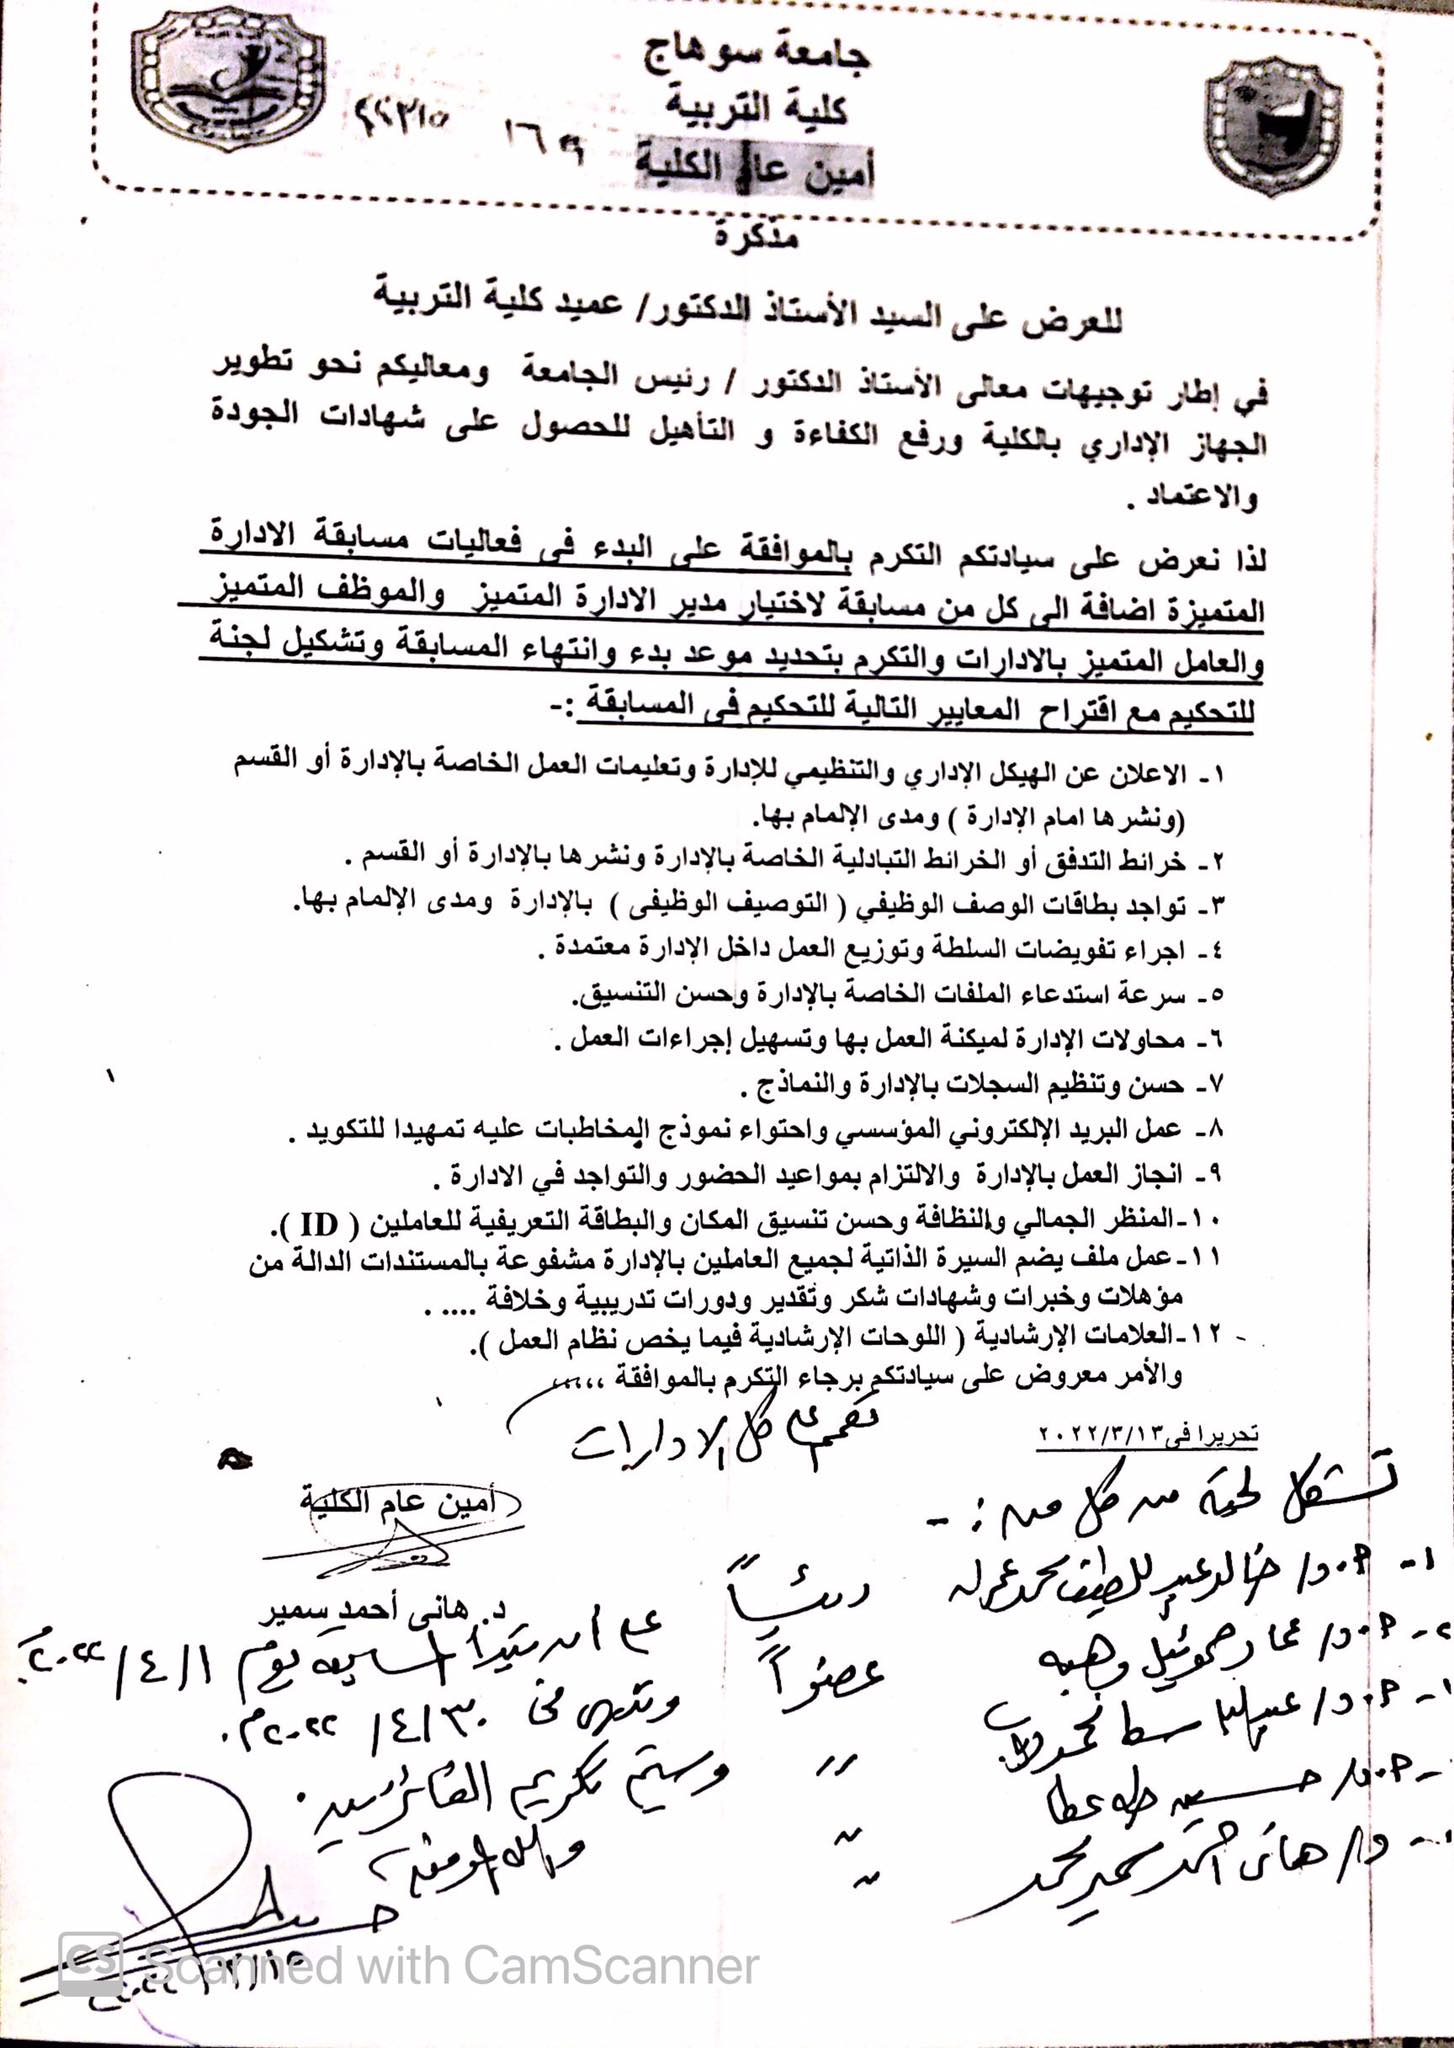 جامعة سوهاج
كلية التربية
أمين عام الكلية
مذكرة
للعرض على السيد الأستاذ الدكتور/ عميد كلية التربية
في إطار توجيهات معالى الأستاذ الدكتور / رئيس الجامعة ومعاليكم نحو تطوير
الجهاز الإداري بالكلية ورفع الكفاءة و التأهيل للحصول على شهادات الجودة
والاعتماد .
لذا نعرض على سيادتكم التكرم بالموافقة على البدء فى فعاليات مسابقة الادارة
المتميزة اضافة الى كل من مسابقة لاختيار مدير الادارة المتميز والموظف المتميز
والعامل المتميز بالادارات والتكرم بتحديد موعد بدء وانتهاء المسابقة وتشكيل لجنة
للتحكيم مع اقتراح المعايير التالية للتحكيم فى المسابقة :-
١- الاعلان عن الهيكل الإداري والتنظيمي للإدارة وتعليمات العمل الخاصة بالإدارة أو القسم
(ونشرها امام الإدارة ) ومدى الإلمام بها.
٢- خرائط التدفق أو الخرائط التبادلية الخاصة بالإدارة ونشرها بالإدارة أو القسم .
٣- تواجد بطاقات الوصف الوظيفي ( التوصيف الوظيفى ) بالإدارة ومدى الإلمام بها.
٤- اجراء تفويضات السلطة وتوزيع العمل داخل الإدارة معتمدة .
٥- سرعة استدعاء الملفات الخاصة بالإدارة وحسن التنسيق.
٦- محاولات الإدارة لميكنة العمل بها وتسهيل إجراءات العمل .
٧- حسن وتنظيم السجلات بالإدارة والنماذج .
٨- عمل البريد الإلكتروني المؤسسي واحتواء نموذج المخاطبات عليه تمهيدا للتكويد .
٩- انجاز العمل بالإدارة والالتزام بمواعيد الحضور والتواجد في الادارة .
١٠-المنظر الجمالي والنظافة وحسن تنسيق المكان والبطاقة التعريفية للعاملين ( ID ).
١١-عمل ملف يضم السيرة الذاتية لجميع العاملين بالإدارة مشفوعة بالمستندات الدالة من
مؤهلات وخبرات وشهادات شكر وتقدير ودورات تدريبية وخلافة .... .
١٢-العلامات الإرشادية ( اللوحات الإرشادية فيما يخص نظام العمل ).
والأمر معروض على سيادتكم برجاء التكرم بالموافقة ،،،،،
تحريرا فى ٢٠٢٢/٣/١٣
تعمم على كل الادارات
أمين عام الكلية
د. هانى أحمد سمير
تشكل لجنة من كل من :-
١- أ.د/ خالد عبد اللطيف محمد عمران رئيساً
أ.د/ وهبه عضواً
أ.د/ عبد الباسط محمد
أ.د/ حسين طه عطا
د/ هانى أحمد سمير محمد
على أن تبدأ المسابقة يوم ٢٠٢٢/٤/١م
وتنتهى فى ٢٠٢٢/٤/٣٠م.
وسيتم تكريم الفائزين.
والله الموفق
٢٠٢٢/٣/١٥
CS Scanned with CamScanner